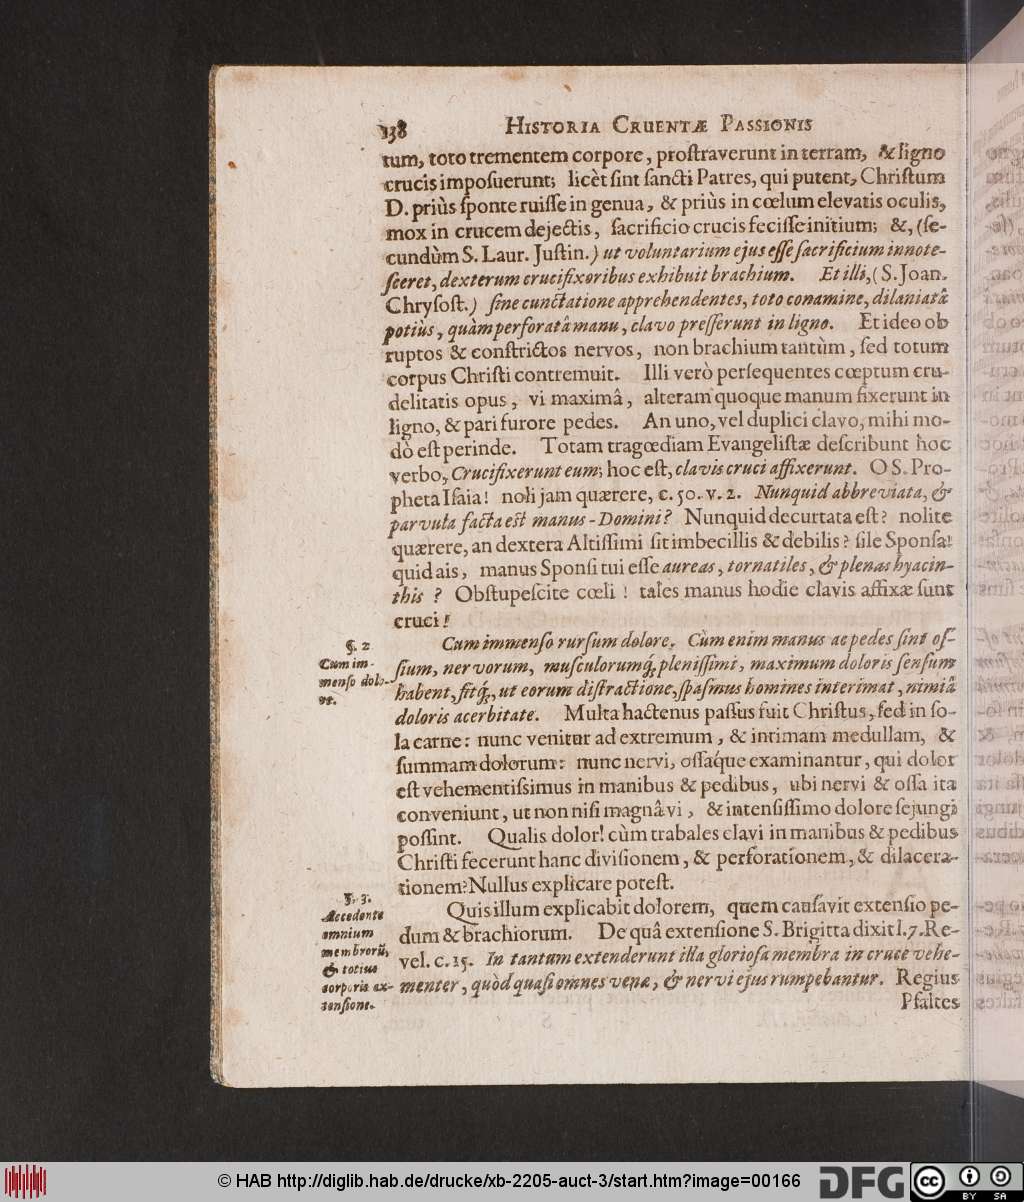 138 HISTORIA CRUENTÆ PASSIONIS
tum, toto trementem corpore, proſtraverunt in terram, & ligno
crucis impoſuerunt; licèt ſint ſancti Patres, qui putent, Chriſtum
D. priùs ſponte ruiſſe in genua, & priùs in cœlum elevatis oculis,
mox in crucem dejectis, ſacrificio crucis feciſſe initium; &, (ſe-
cundùm S. Laur. Juſtin.) ut voluntarium ejus eſſe ſacrificium innote-
ſceret, dexterum crucifixoribus exhibuit brachium. Et illi, (S. Joan.
Chryſoſt.) ſine cunctatione apprehendentes, toto conamine, dilaniatâ
potiùs, quàm perforatâ manu, clavo preſſerunt in ligno. Et ideo ob
ruptos & conſtrictos nervos, non brachium tantùm, ſed totum
corpus Chriſti contremuit. Illi verò perſequentes cœptum cru-
delitatis opus, vi maximâ, alteram quoque manum fixerunt in
ligno, & pari furore pedes. An uno, vel duplici clavo, mihi mo-
dò eſt perinde. Totam tragœdiam Evangeliſtæ deſcribunt hoc
verbo, Crucifixerunt eum; hoc eſt, clavis cruci affixerunt. O S. Pro-
pheta Iſaia! noli jam quærere, c. 50. v. 2. Nunquid abbreviata, &
parvula facta est manus-Domini? Nunquid decurtata eſt? nolite
quærere, an dextera Altiſſimi ſit imbecillis & debilis? ſile Sponſa!
quid ais, manus Sponſi tui eſſe aureas, tornatiles, & plenas hyacin-
this? Obſtupeſcite cœli! tales manus hodie clavis affixæ ſunt
cruci!
§. 2.
Cum im-
menso dolo-
re.
Cum immenſo rurſum dolore. Cùm enim manus ac pedes ſint oſ-
ſium, nervorum, muſculorumq́, pleniſſimi, maximum doloris ſenſum
habent, fitq́, ut eorum diſtractione, ſpaſmus homines interimat, nimiâ
doloris acerbitate. Multa hactenus paſſus fuit Chriſtus, ſed in ſo-
la carne: nunc venitur ad extremum, & intimam medullam, &
ſummam dolorum: nunc nervi, oſſáque examinantur, qui dolor
eſt vehementiſſimus in manibus & pedibus, ubi nervi & oſſa ita
conveniunt, ut non niſi magnâ vi, & intenſiſſimo dolore ſejungi
poſſint. Qualis dolor! cùm trabales clavi in manibus & pedibus
Chriſti fecerunt hanc diviſionem, & perforationem, & dilacera-
tionem? Nullus explicare poteſt.
§. 3.
Accedente
omnium
membrorũ,
& totius
corporis ex-
tensione.
Quis illum explicabit dolorem, quem cauſavit extenſio pe-
dum & brachiorum. De quâ extenſione S. Brigitta dixit l. 7. Re-
vel. c. 15. In tantum extenderunt illa glorioſa membra in cruce vehe-
menter, quòd quaſi omnes venæ, & nervi ejus rumpebantur. Regius
Pſaltes
© HAB http://diglib.hab.de/drucke/xb-2205-auct-3/start.htm?image=00166
DFG
cc BY SA